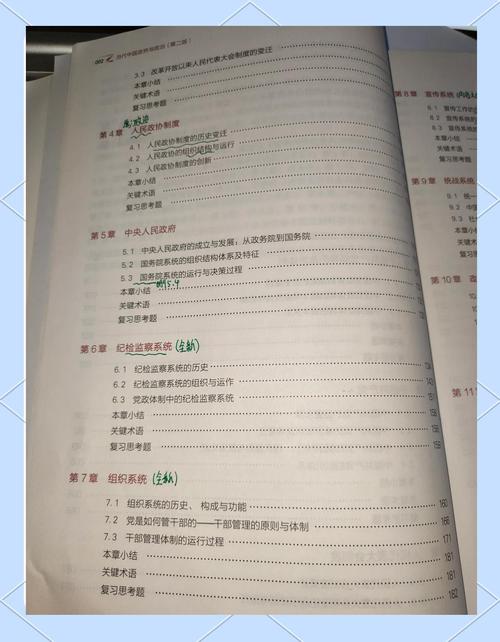 002 当代中国政府与政治（第二版）
3.3 改革开放以来人民代表大会制度的变迁
本章小结
关键术语
复习思考题
第4章 人民政协制度
4.1 人民政协制度的历史变迁
4.2 人民政协的组织结构与运行
4.3 人民政协制度的创新
本章小结
关键术语
复习思考题
第5章 中央人民政府
5.1 中央人民政府的成立与发展：从政务院到国务院
5.2 国务院系统的组织结构体系及特征
5.3 国务院系统的运行与决策过程
本章小结
关键术语
复习思考题
第6章 纪检监察系统（全新）
6.1 纪检监察系统的历史 134
6.2 纪检监察系统的组织与运作 143
6.3 党政体制中的纪检监察系统 151
本章小结 158
关键术语 158
复习思考题 159
第7章 组织系统（全新）
7.1 组织系统的历史、构成与功能 160
7.2 党是如何管干部的——干部管理的原则与体制 166
7.3 干部管理体制的运行过程 171
本章小结 181
关键术语 181
复习思考题 182
第8章 宣传系统
8.1 宣传工作的
8.2 宣传系统
8.3 宣传系统
本章小结
关键术语
复习思考题
第9章 统战系统
9.1 统一
9.2 中国
9.3 社
本章小结
关键术语
复习思考
第10章 政
第11章